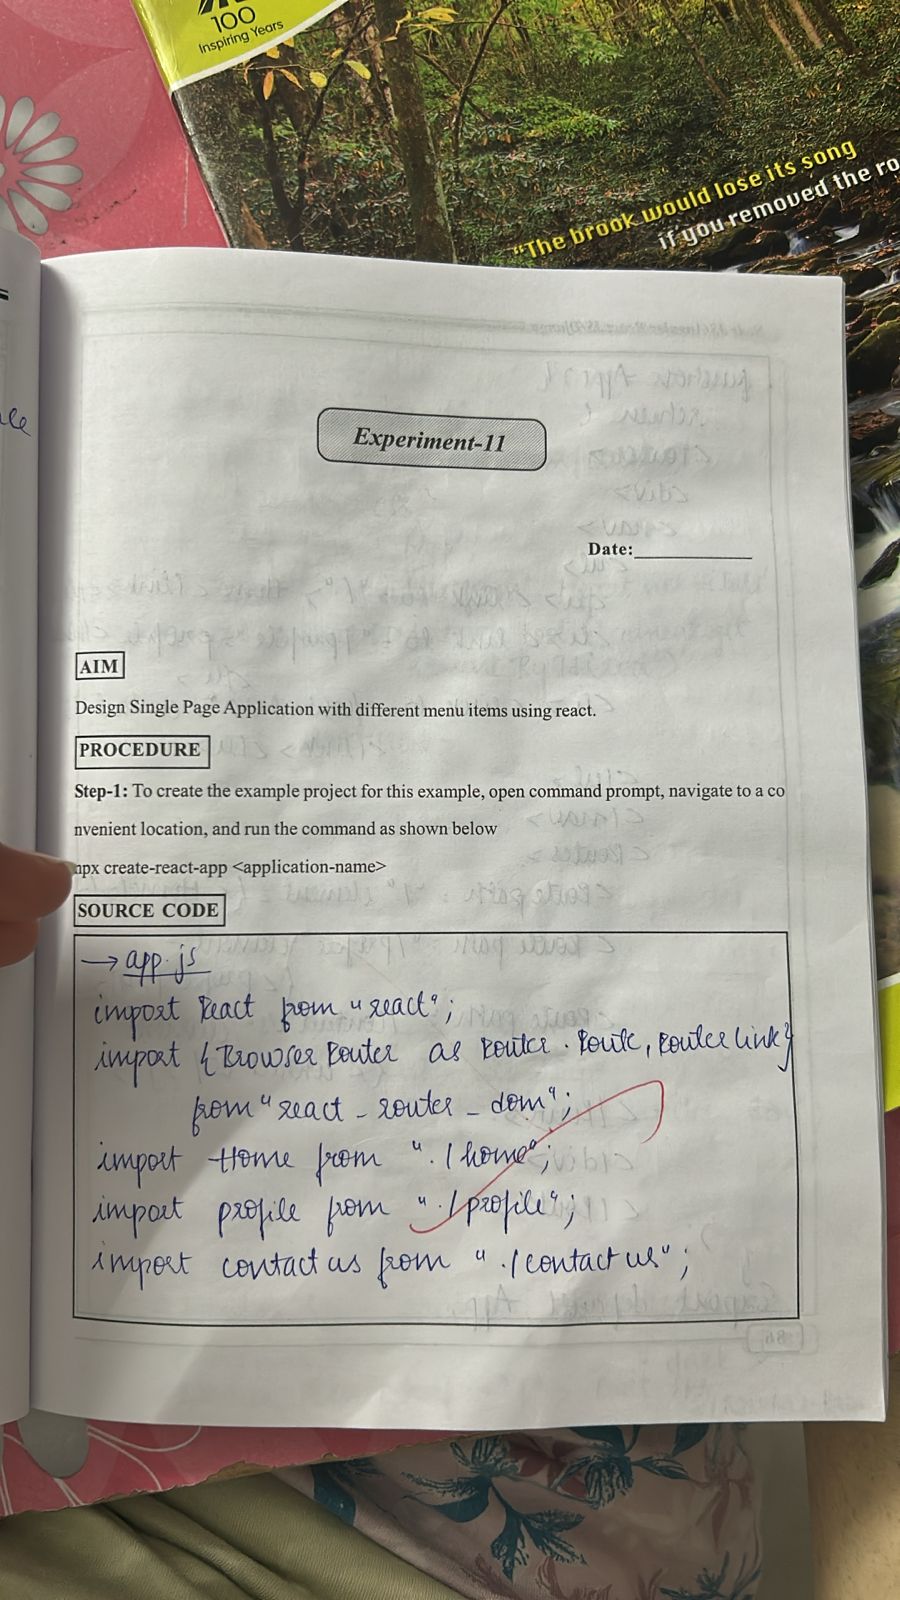 100
Inspiring Years
"The brook would lose its song
if you removed the ro
Experiment-11
Date:
AIM
Design Single Page Application with different menu items using react.
PROCEDURE
Step-1: To create the example project for this example, open command prompt, navigate to a co
nvenient location, and run the command as shown below
npx create-react-app <application-name>
SOURCE CODE
→ app.js
import React from "react";
import {Browser Router as Router . Route, Router link}
from "react - router - dom";
import Home from "./home";
import profile from "./profile";
import contact us from "./contact us";